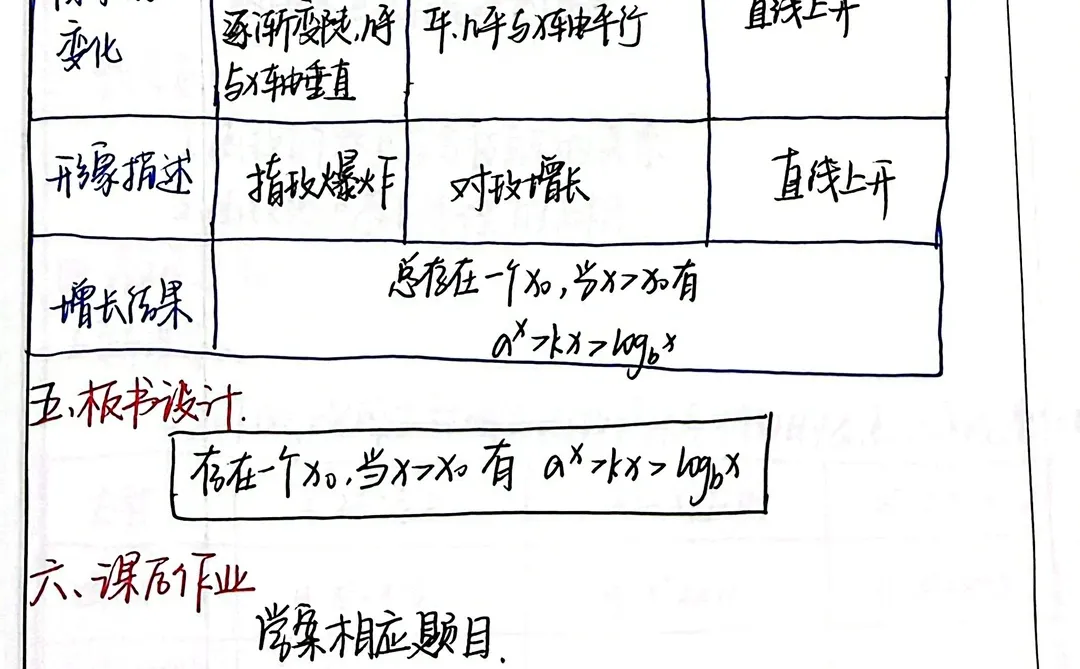 变化
逐渐变陡,几乎
与x轴垂直
平,几乎与x轴平行
直线上升
形象描述
指数爆炸
对数增长
直线上升
增长结果
总存在一个x₀,当x>x₀有
aˣ>kx>log_b x
五、板书设计.
存在一个x₀,当x>x₀ 有 aˣ>kx>log_b x
六、课后作业
学案相应题目.